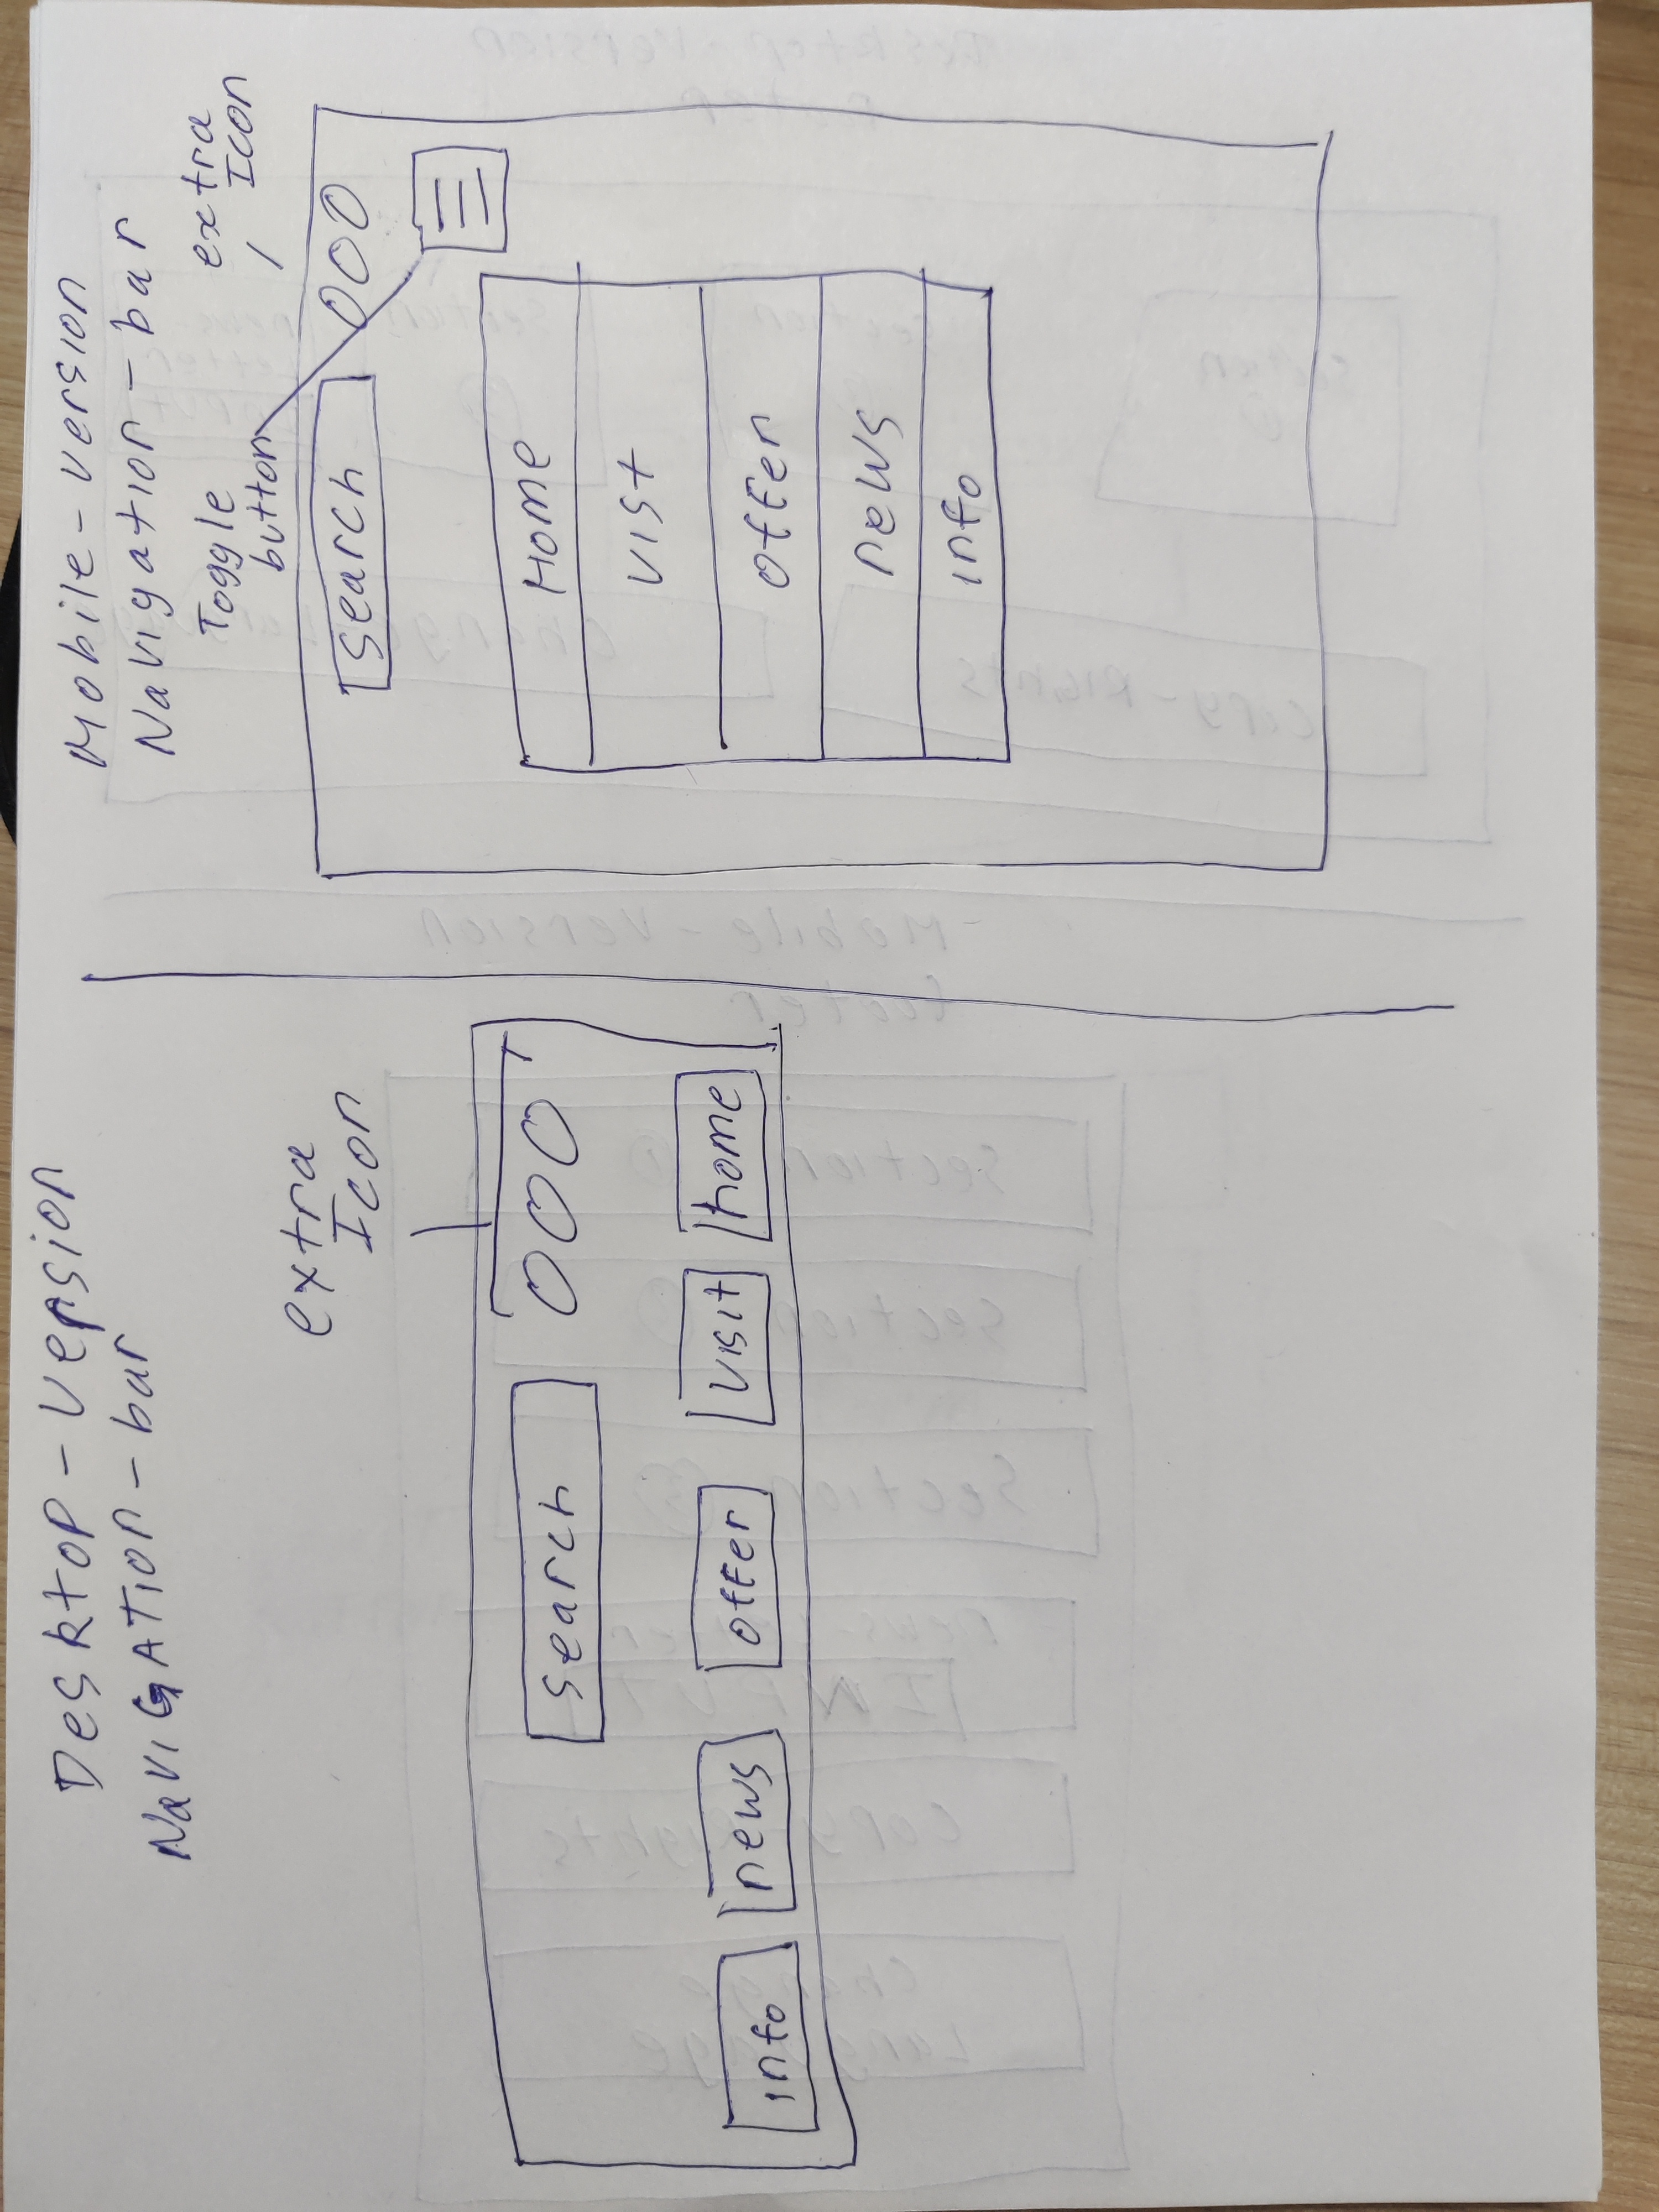 Desktop - Version
NaviGATion - bar
extra
Icon
search
info
news
offer
visit
home
Mobile - version
Navigation - bar
Toggle
button
extra
Icon
search
Home
vist
offer
news
info